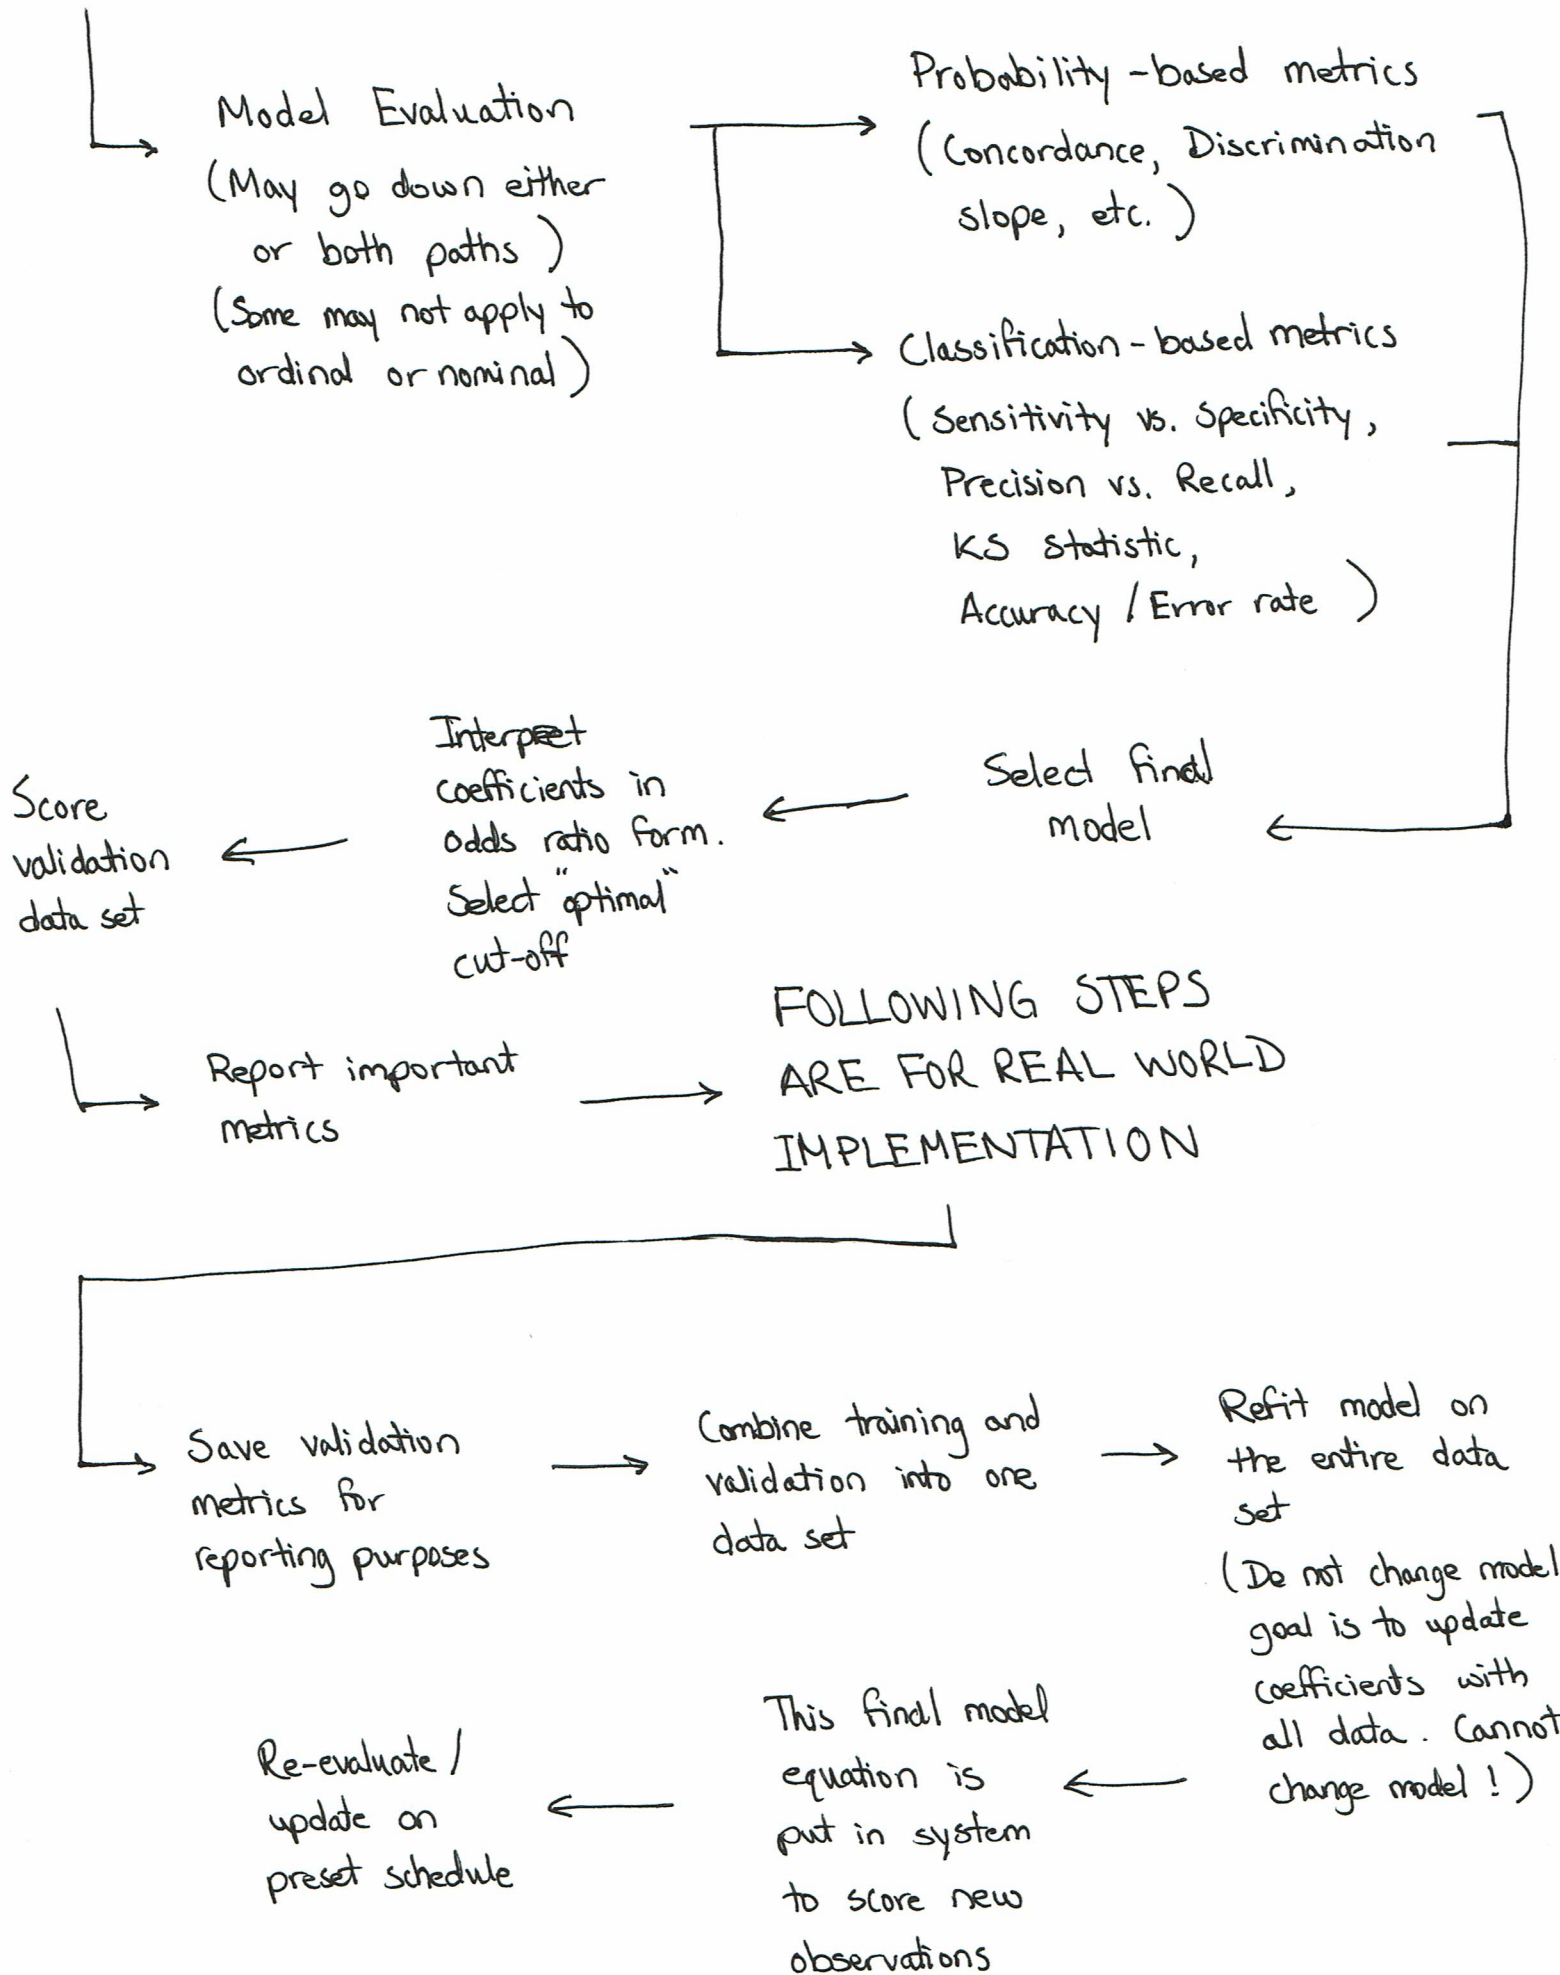 Model Evaluation
(May go down either
or both paths)
(Some may not apply to
ordinal or nominal)
Probability-based metrics
(Concordance, Discrimination
slope, etc.)
Classification-based metrics
(Sensitivity vs. Specificity,
Precision vs. Recall,
KS Statistic,
Accuracy / Error rate)
Select final
model
Interpret
coefficients in
odds ratio form.
Select "optimal"
cut-off
Score
validation
data set
Report important
metrics
FOLLOWING STEPS
ARE FOR REAL WORLD
IMPLEMENTATION
Save validation
metrics for
reporting purposes
Combine training and
validation into one
data set
Refit model on
the entire data
set
(Do not change model
goal is to update
coefficients with
all data. Cannot
change model!)
This final model
equation is
put in system
to score new
observations
Re-evaluate /
update on
preset schedule